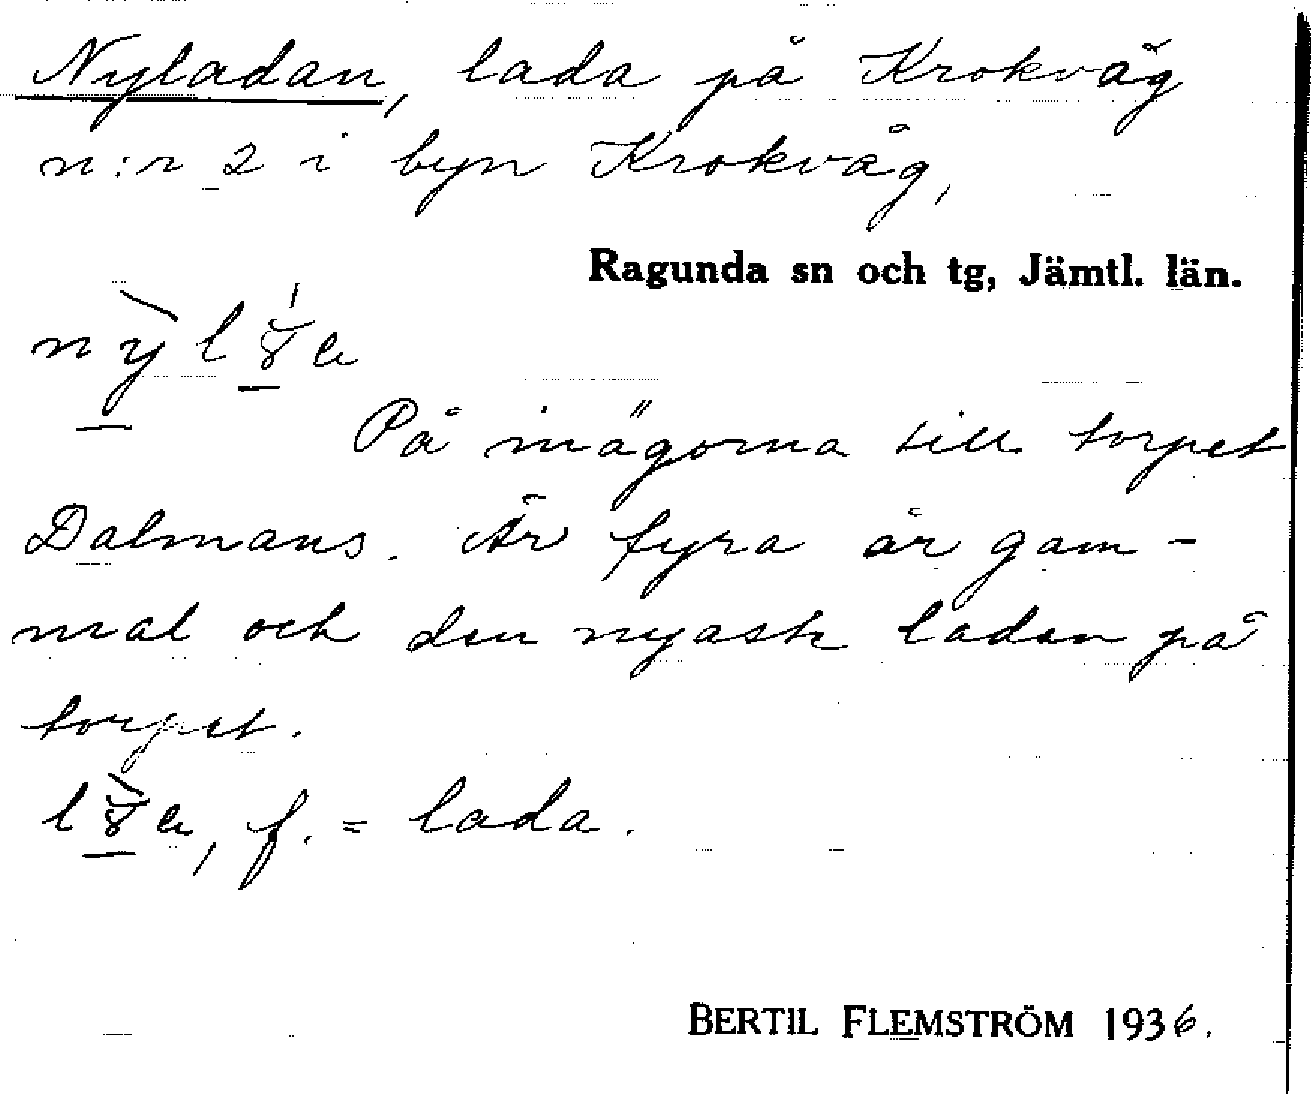 Nyladan, lada på Krokvåg
n:r 2 i byn Krokvåg,
Ragunda sn och tg, Jämtl. län.
På inägorna till torpet
Dalmans. Är fyra år gam-
mal och den nyaste ladan på
torpet.
f. = lada.
BERTIL FLEMSTRÖM 1936.